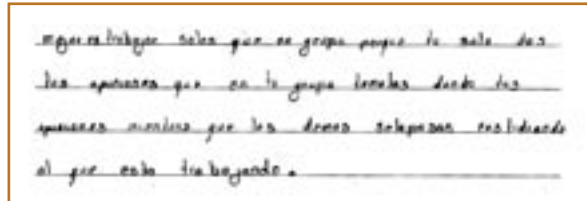 mejor es trabajar solos que en grupo porque tu solo das
tus opiniones que en tu grupo dando tus
opiniones mientras que los demas
al que esta trabajando.